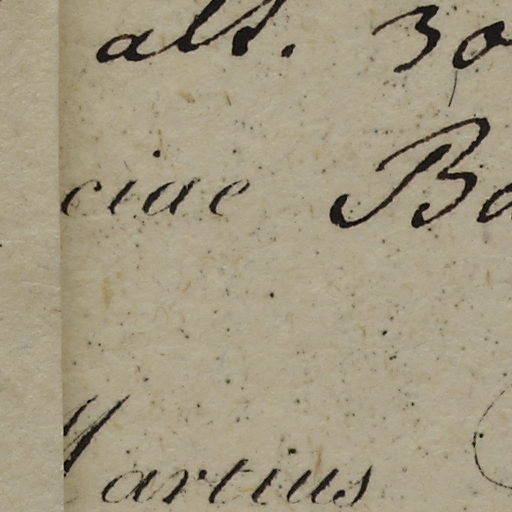 alt. 30
ciae Ba
Martius